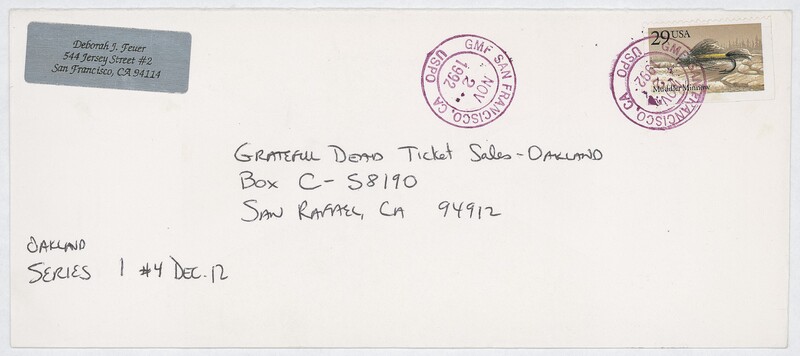 Deborah J. Feuer
544 Jersey Street #2
San Francisco, CA 94114
GMF SAN FRANCISCO, CA
NOV
2
1992
USPO
29 USA
Muddler Minnow
GMF SAN FRANCISCO, CA
NOV
1992
USPO
GRATEFUL DEAD TICKET SALES-OAKLAND
BOX C-S8190
SAN RAFAEL, CA 94912
OAKLAND
SERIES 1 #4 DEC. 12